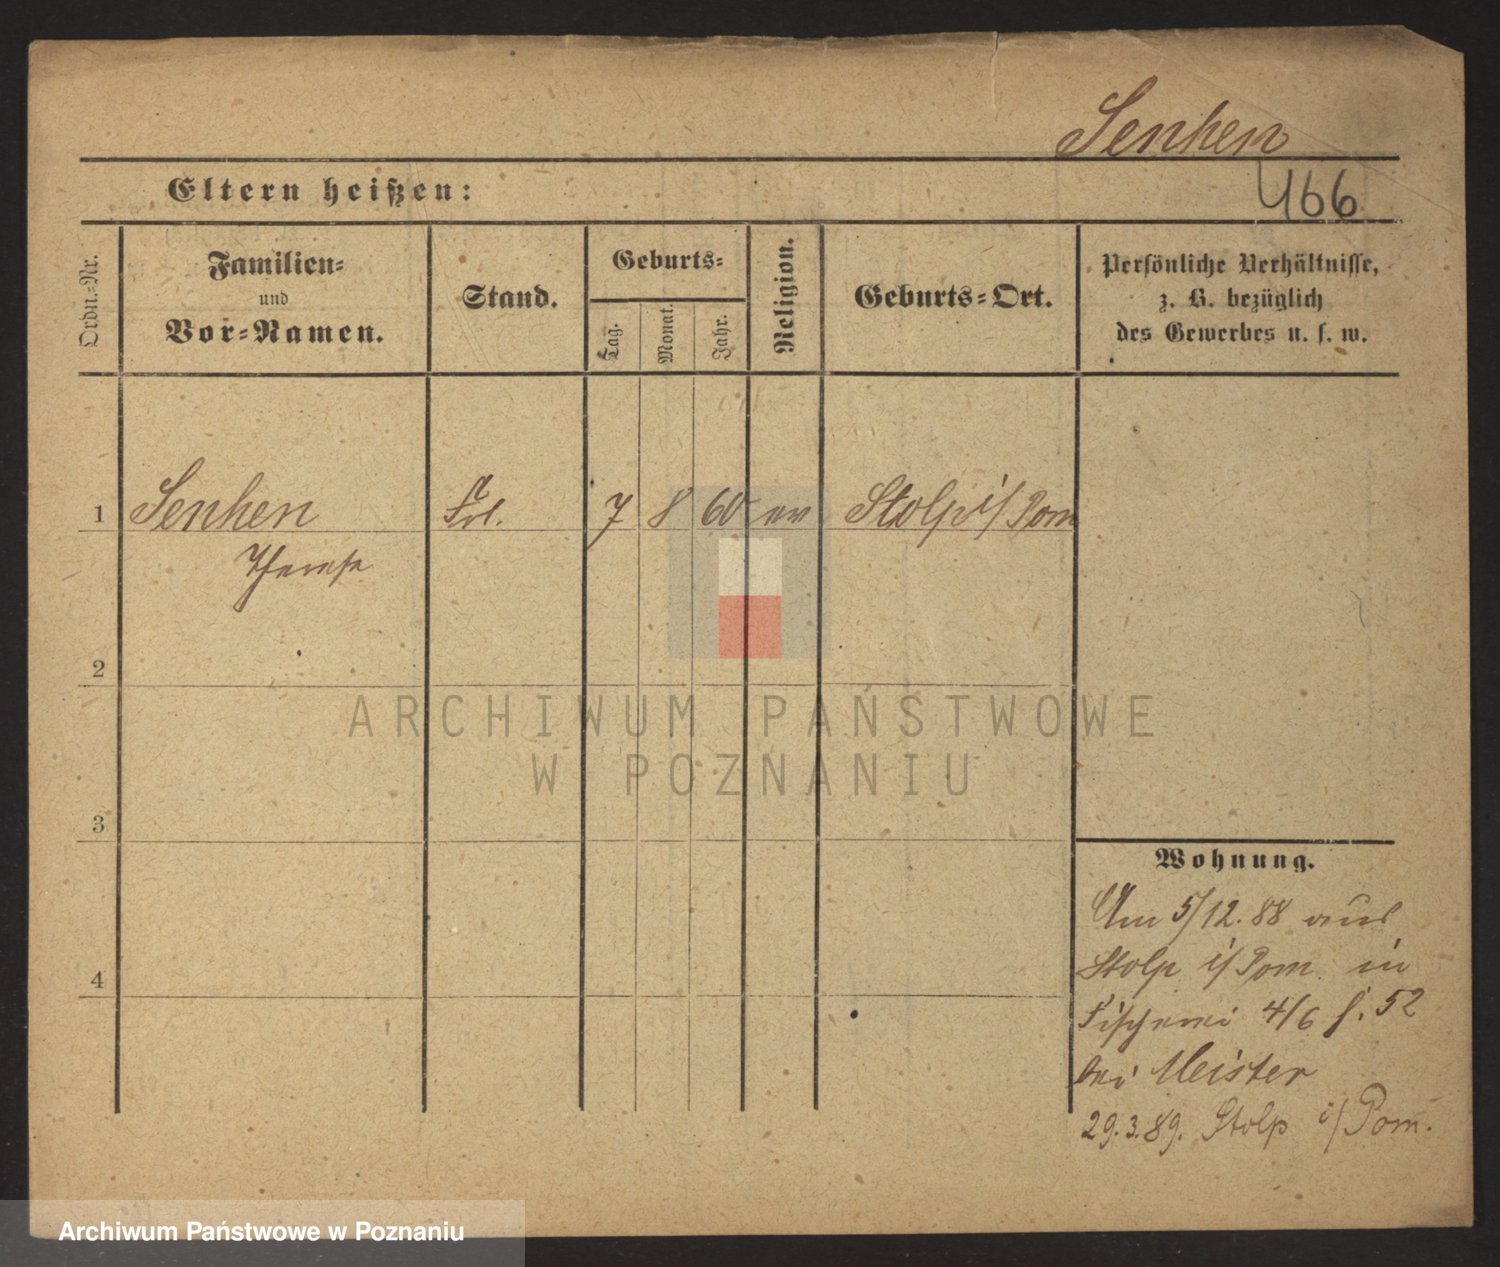 Senhen
Eltern heißen:
466
Ordn.-Nr.
Familien-
und
Vor-Namen.
Stand.
Geburts-
Tag.
Monat.
Jahr.
Religion.
Geburts-Ort.
Persönliche Verhältnisse,
z. B. bezüglich
des Gewerbes u. s. w.
1 Senhen Frl. 7 8 60 ev Stolp i/ Pom
Therese
2
3
4
Wohnung.
Am 5/12.88 aus
Stolp i/ Pom. in
Fischerei 4/6 f. 52
bei Meister
29.3.89. Stolp i/ Pom.
ARCHIWUM PAŃSTWOWE
W POZNANIU
Archiwum Państwowe w Poznaniu